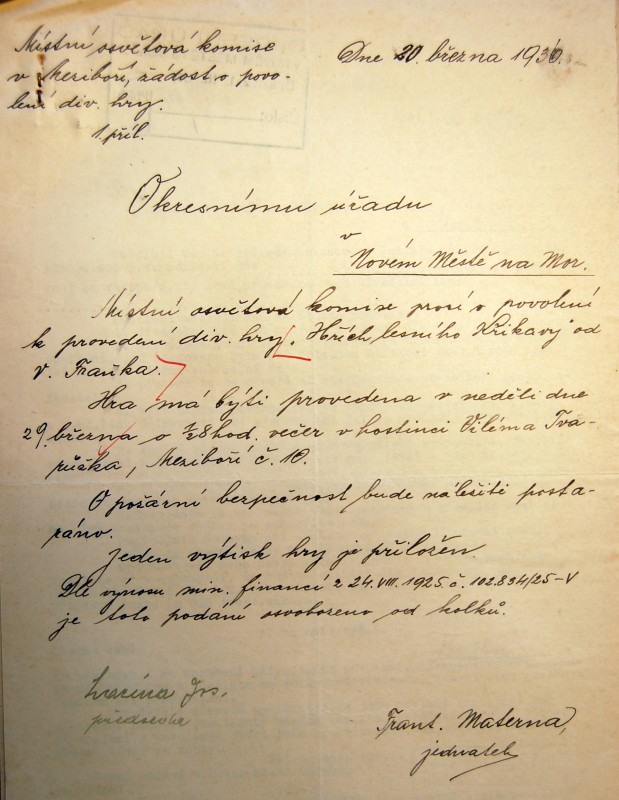 Místní osvětová komise
v Meziboří, žádost o povo-
lení div. hry.
1 příl.
Dne 20. března 1936.
Okresnímu úřadu
v
Novém Městě na Mor.
Místní osvětová komise prosí o povolení
k provedení div. hry „Hřích lesního Křikavy" od
V. Fraňka.
Hra má býti provedena v neděli dne
29. března o ½8 hod. večer v hostinci Viléma Tva-
růžka, Meziboří č. 10.
O požární bezpečnost bude náležitě posta-
ráno.
Jeden výtisk hry je přiložen.
Dle výnosu min. financí z 24. VIII. 1925. č. 102.834/25-V
je toto podání osvobozeno od kolků.
Lacina Jos.
předseda
Frant. Materna,
jednatel